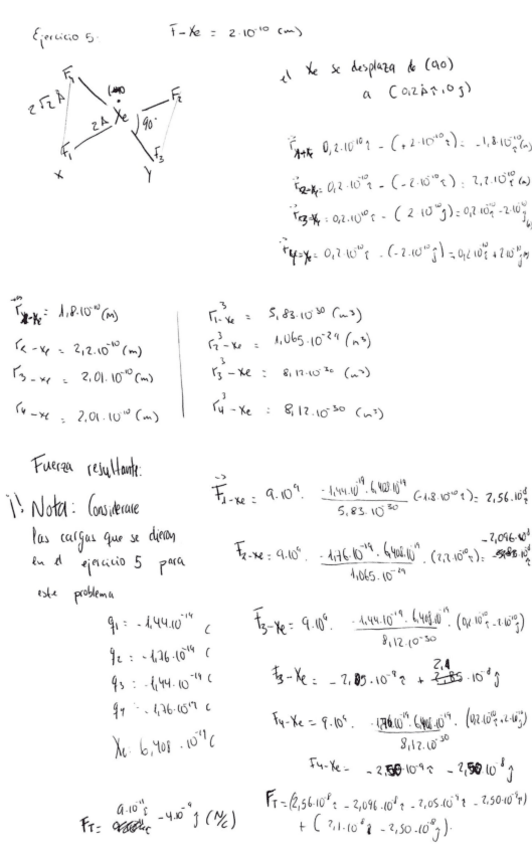 Ejercicio 5.
F-Xe = 2·10⁻¹⁰ (m)
el Xe se desplaza de (0,0)
a (0,2Å î, 0 ĵ)
F₂
2√2 Å
Xe
2Å
90°
F₁
F₃
x
y
0,2·10⁻¹⁰ î - (+2·10⁻¹⁰ î) = -1,8·10⁻¹⁰ î (m)
r₂-Xe = 0,2·10⁻¹⁰ î - (-2·10⁻¹⁰ î) = 2,2·10⁻¹⁰ (m)
r₃-Xe = 0,2·10⁻¹⁰ î - (2·10⁻¹⁰ ĵ) = 0,2·10⁻¹⁰ î - 2·10⁻¹⁰ ĵ
r₄-Xe = 0,2·10⁻¹⁰ î - (-2·10⁻¹⁰ ĵ) = 0,2·10⁻¹⁰ î + 2·10⁻¹⁰ ĵ
= 1,8·10⁻¹⁰ (m)
r₂-Xe = 2,2·10⁻¹⁰ (m)
r₃-Xe = 2,01·10⁻¹⁰ (m)
r₄-Xe = 2,01·10⁻¹⁰ (m)
r³₁-Xe = 5,83·10⁻³⁰ (m³)
r³₂-Xe = 1,065·10⁻²⁹ (m³)
r³₃-Xe = 8,12·10⁻³⁰ (m³)
r³₄-Xe = 8,12·10⁻³⁰ (m³)
Fuerza resultante:
¡¡ Nota: Considerare
las cargas que se dieron
en el ejercicio 5 para
este problema
q₁ = -1,44·10⁻¹⁹ C
q₂ = -1,76·10⁻¹⁹ C
q₃ = -1,44·10⁻¹⁹ C
q₄ = -1,76·10⁻¹⁹ C
Xe = 6,408·10⁻¹⁹ C
F₁-Xe = 9·10⁹ · (-1,44·10⁻¹⁹ · 6,408·10⁻¹⁹)/(5,83·10⁻³⁰) (-1,8·10⁻¹⁰ î) = 2,56·10⁻⁸ î
F₂-Xe = 9·10⁹ · (-1,76·10⁻¹⁹ · 6,408·10⁻¹⁹)/(1,065·10⁻²⁹) · (2,2·10⁻¹⁰ î) = -2,096·10⁻⁸ î
F₃-Xe = 9·10⁹ · (-1,44·10⁻¹⁹ · 6,408·10⁻¹⁹)/(8,12·10⁻³⁰) · (0,2·10⁻¹⁰ î - 2·10⁻¹⁰ ĵ)
F₃-Xe = -2,05·10⁻⁹ î + 2,1·10⁻⁸ ĵ
F₄-Xe = 9·10⁹ · (-1,76·10⁻¹⁹ · 6,408·10⁻¹⁹)/(8,12·10⁻³⁰) · (0,2·10⁻¹⁰ î + 2·10⁻¹⁰ ĵ)
F₄-Xe = -2,50·10⁻⁹ î - 2,50·10⁻⁸ ĵ
F_T = (2,56·10⁻⁸ î - 2,096·10⁻⁸ î - 2,05·10⁻⁹ î - 2,50·10⁻⁹ î)
+ (2,1·10⁻⁸ ĵ - 2,50·10⁻⁸ ĵ).
F_T = -4·10⁻⁹ ĵ (N/C)